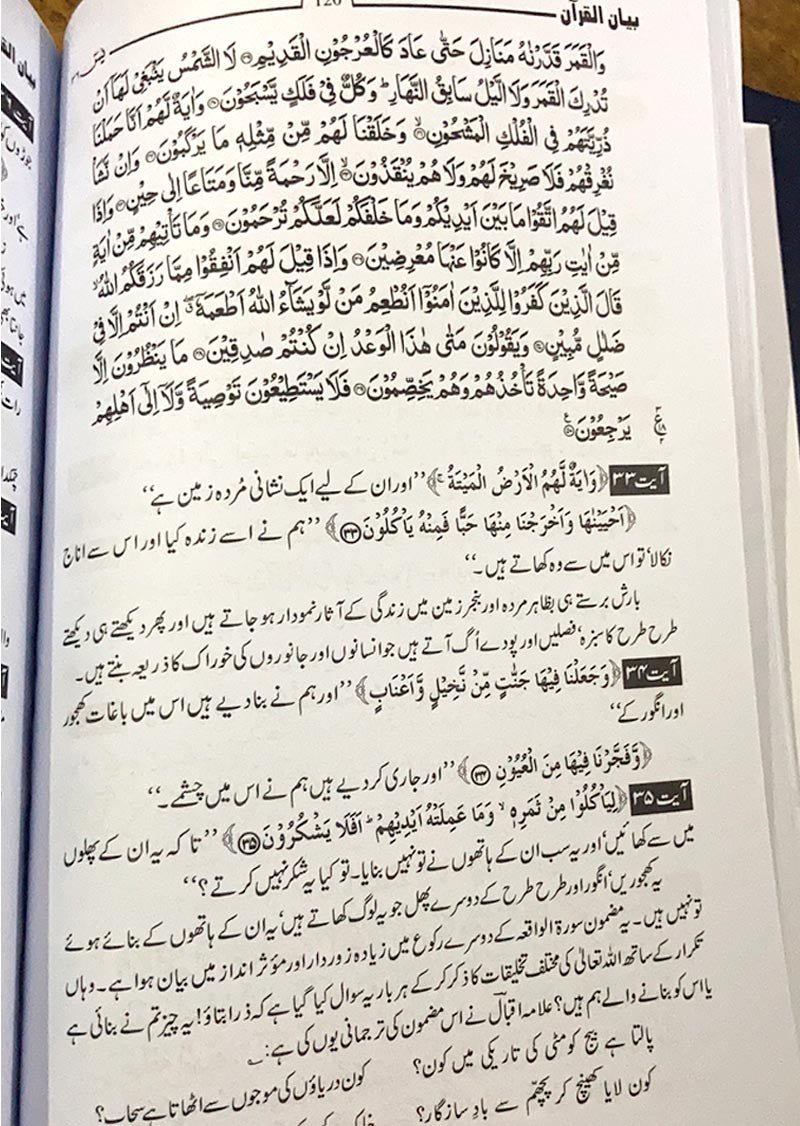 بیان القرآن
120
یٰسٓ ۳۶
وَالْقَمَرَ قَدَّرْنٰهُ مَنَازِلَ حَتّٰى عَادَ كَالْعُرْجُوْنِ الْقَدِيْمِ۝۳۹ لَا الشَّمْسُ يَنْۢبَغِيْ لَهَاۤ اَنْ
تُدْرِكَ الْقَمَرَ وَلَا الَّيْلُ سَابِقُ النَّهَارِ ؕ وَكُلٌّ فِيْ فَلَكٍ يَّسْبَحُوْنَ۝۴۰ وَاٰيَةٌ لَّهُمْ اَنَّا حَمَلْنَا
ذُرِّيَّتَهُمْ فِي الْفُلْكِ الْمَشْحُوْنِ۝۴۱ۙ وَخَلَقْنَا لَهُمْ مِّنْ مِّثْلِهٖ مَا يَرْكَبُوْنَ۝۴۲ وَاِنْ نَّشَاْ
نُغْرِقْهُمْ فَلَا صَرِيْخَ لَهُمْ وَلَا هُمْ يُنْقَذُوْنَ۝۴۳ۙ اِلَّا رَحْمَةً مِّنَّا وَمَتَاعًا اِلٰى حِيْنٍ۝۴۴ وَاِذَا
قِيْلَ لَهُمُ اتَّقُوْا مَا بَيْنَ اَيْدِيْكُمْ وَمَا خَلْفَكُمْ لَعَلَّكُمْ تُرْحَمُوْنَ۝۴۵ وَمَا تَاْتِيْهِمْ مِّنْ اٰيَةٍ
مِّنْ اٰيٰتِ رَبِّهِمْ اِلَّا كَانُوْا عَنْهَا مُعْرِضِيْنَ۝۴۶ وَاِذَا قِيْلَ لَهُمْ اَنْفِقُوْا مِمَّا رَزَقَكُمُ اللّٰهُ ۙ
قَالَ الَّذِيْنَ كَفَرُوْا لِلَّذِيْنَ اٰمَنُوْۤا اَنُطْعِمُ مَنْ لَّوْ يَشَآءُ اللّٰهُ اَطْعَمَهٗۤ ۖ اِنْ اَنْتُمْ اِلَّا فِيْ
ضَلٰلٍ مُّبِيْنٍ۝۴۷ وَيَقُوْلُوْنَ مَتٰى هٰذَا الْوَعْدُ اِنْ كُنْتُمْ صٰدِقِيْنَ۝۴۸ مَا يَنْظُرُوْنَ اِلَّا
صَيْحَةً وَّاحِدَةً تَاْخُذُهُمْ وَهُمْ يَخِصِّمُوْنَ۝۴۹ فَلَا يَسْتَطِيْعُوْنَ تَوْصِيَةً وَّلَاۤ اِلٰۤى اَهْلِهِمْ
يَرْجِعُوْنَ۝۵۰
آیت ۳۳ ﴿وَاٰيَةٌ لَّهُمُ الْاَرْضُ الْمَيْتَةُ ۚ﴾ ’’اور ان کے لیے ایک نشانی مُردہ زمین ہے‘‘
﴿اَحْيَيْنٰهَا وَاَخْرَجْنَا مِنْهَا حَبًّا فَمِنْهُ يَاْكُلُوْنَ۝۳۳﴾ ’’ہم نے اسے زندہ کیا اور اس سے اناج
نکالا‘ تو اس میں سے وہ کھاتے ہیں۔‘‘
بارش برستے ہی بظاہر مردہ اور بنجر زمین میں زندگی کے آثار نمودار ہو جاتے ہیں اور پھر دیکھتے ہی دیکھتے
طرح طرح کا سبزہ‘ فصلیں اور پودے اُگ آتے ہیں جو انسانوں اور جانوروں کی خوراک کا ذریعہ بنتے ہیں۔
آیت ۳۴ ﴿وَجَعَلْنَا فِيْهَا جَنّٰتٍ مِّنْ نَّخِيْلٍ وَّاَعْنَابٍ﴾ ’’اور ہم نے بنا دیے ہیں اس میں باغات کھجور
اور انگور کے‘‘
﴿وَّفَجَّرْنَا فِيْهَا مِنَ الْعُيُوْنِ۝۳۴﴾ ’’اور جاری کر دیے ہیں ہم نے اس میں چشمے۔‘‘
آیت ۳۵ ﴿لِيَاْكُلُوْا مِنْ ثَمَرِهٖ ۙ وَمَا عَمِلَتْهُ اَيْدِيْهِمْ ؕ اَفَلَا يَشْكُرُوْنَ۝۳۵﴾ ’’تا کہ یہ ان کے پھلوں
میں سے کھائیں‘ اور یہ سب ان کے ہاتھوں نے تو نہیں بنایا۔ تو کیا یہ شکر نہیں کرتے؟‘‘
یہ کھجوریں‘ انگور اور طرح طرح کے دوسرے پھل جو یہ لوگ کھاتے ہیں‘ یہ ان کے ہاتھوں کے بنائے ہوئے
تو نہیں ہیں۔ یہ مضمون سورۃ الواقعہ کے دوسرے رکوع میں زیادہ زوردار اور مؤثر انداز میں بیان ہوا ہے۔ وہاں
تکرار کے ساتھ اللہ تعالیٰ کی مختلف تخلیقات کا ذکر کر کے ہر بار یہ سوال کیا گیا ہے کہ ذرا بتاؤ! یہ چیز تم نے بنائی ہے
یا اس کو بنانے والے ہم ہیں؟ علامہ اقبالؔ نے اس مضمون کی ترجمانی یوں کی ہے:
پالتا ہے بیج کو مٹی کی تاریکی میں کون؟
کون دریاؤں کی موجوں سے اٹھاتا ہے سحاب؟
کون لایا کھینچ کر پچھّم سے بادِ سازگار؟